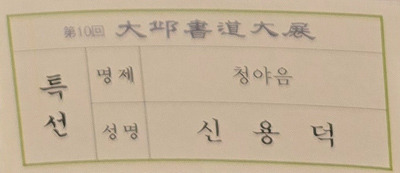 第10回 大邱書道大展
특선
명제 청야음
성명 신용덕